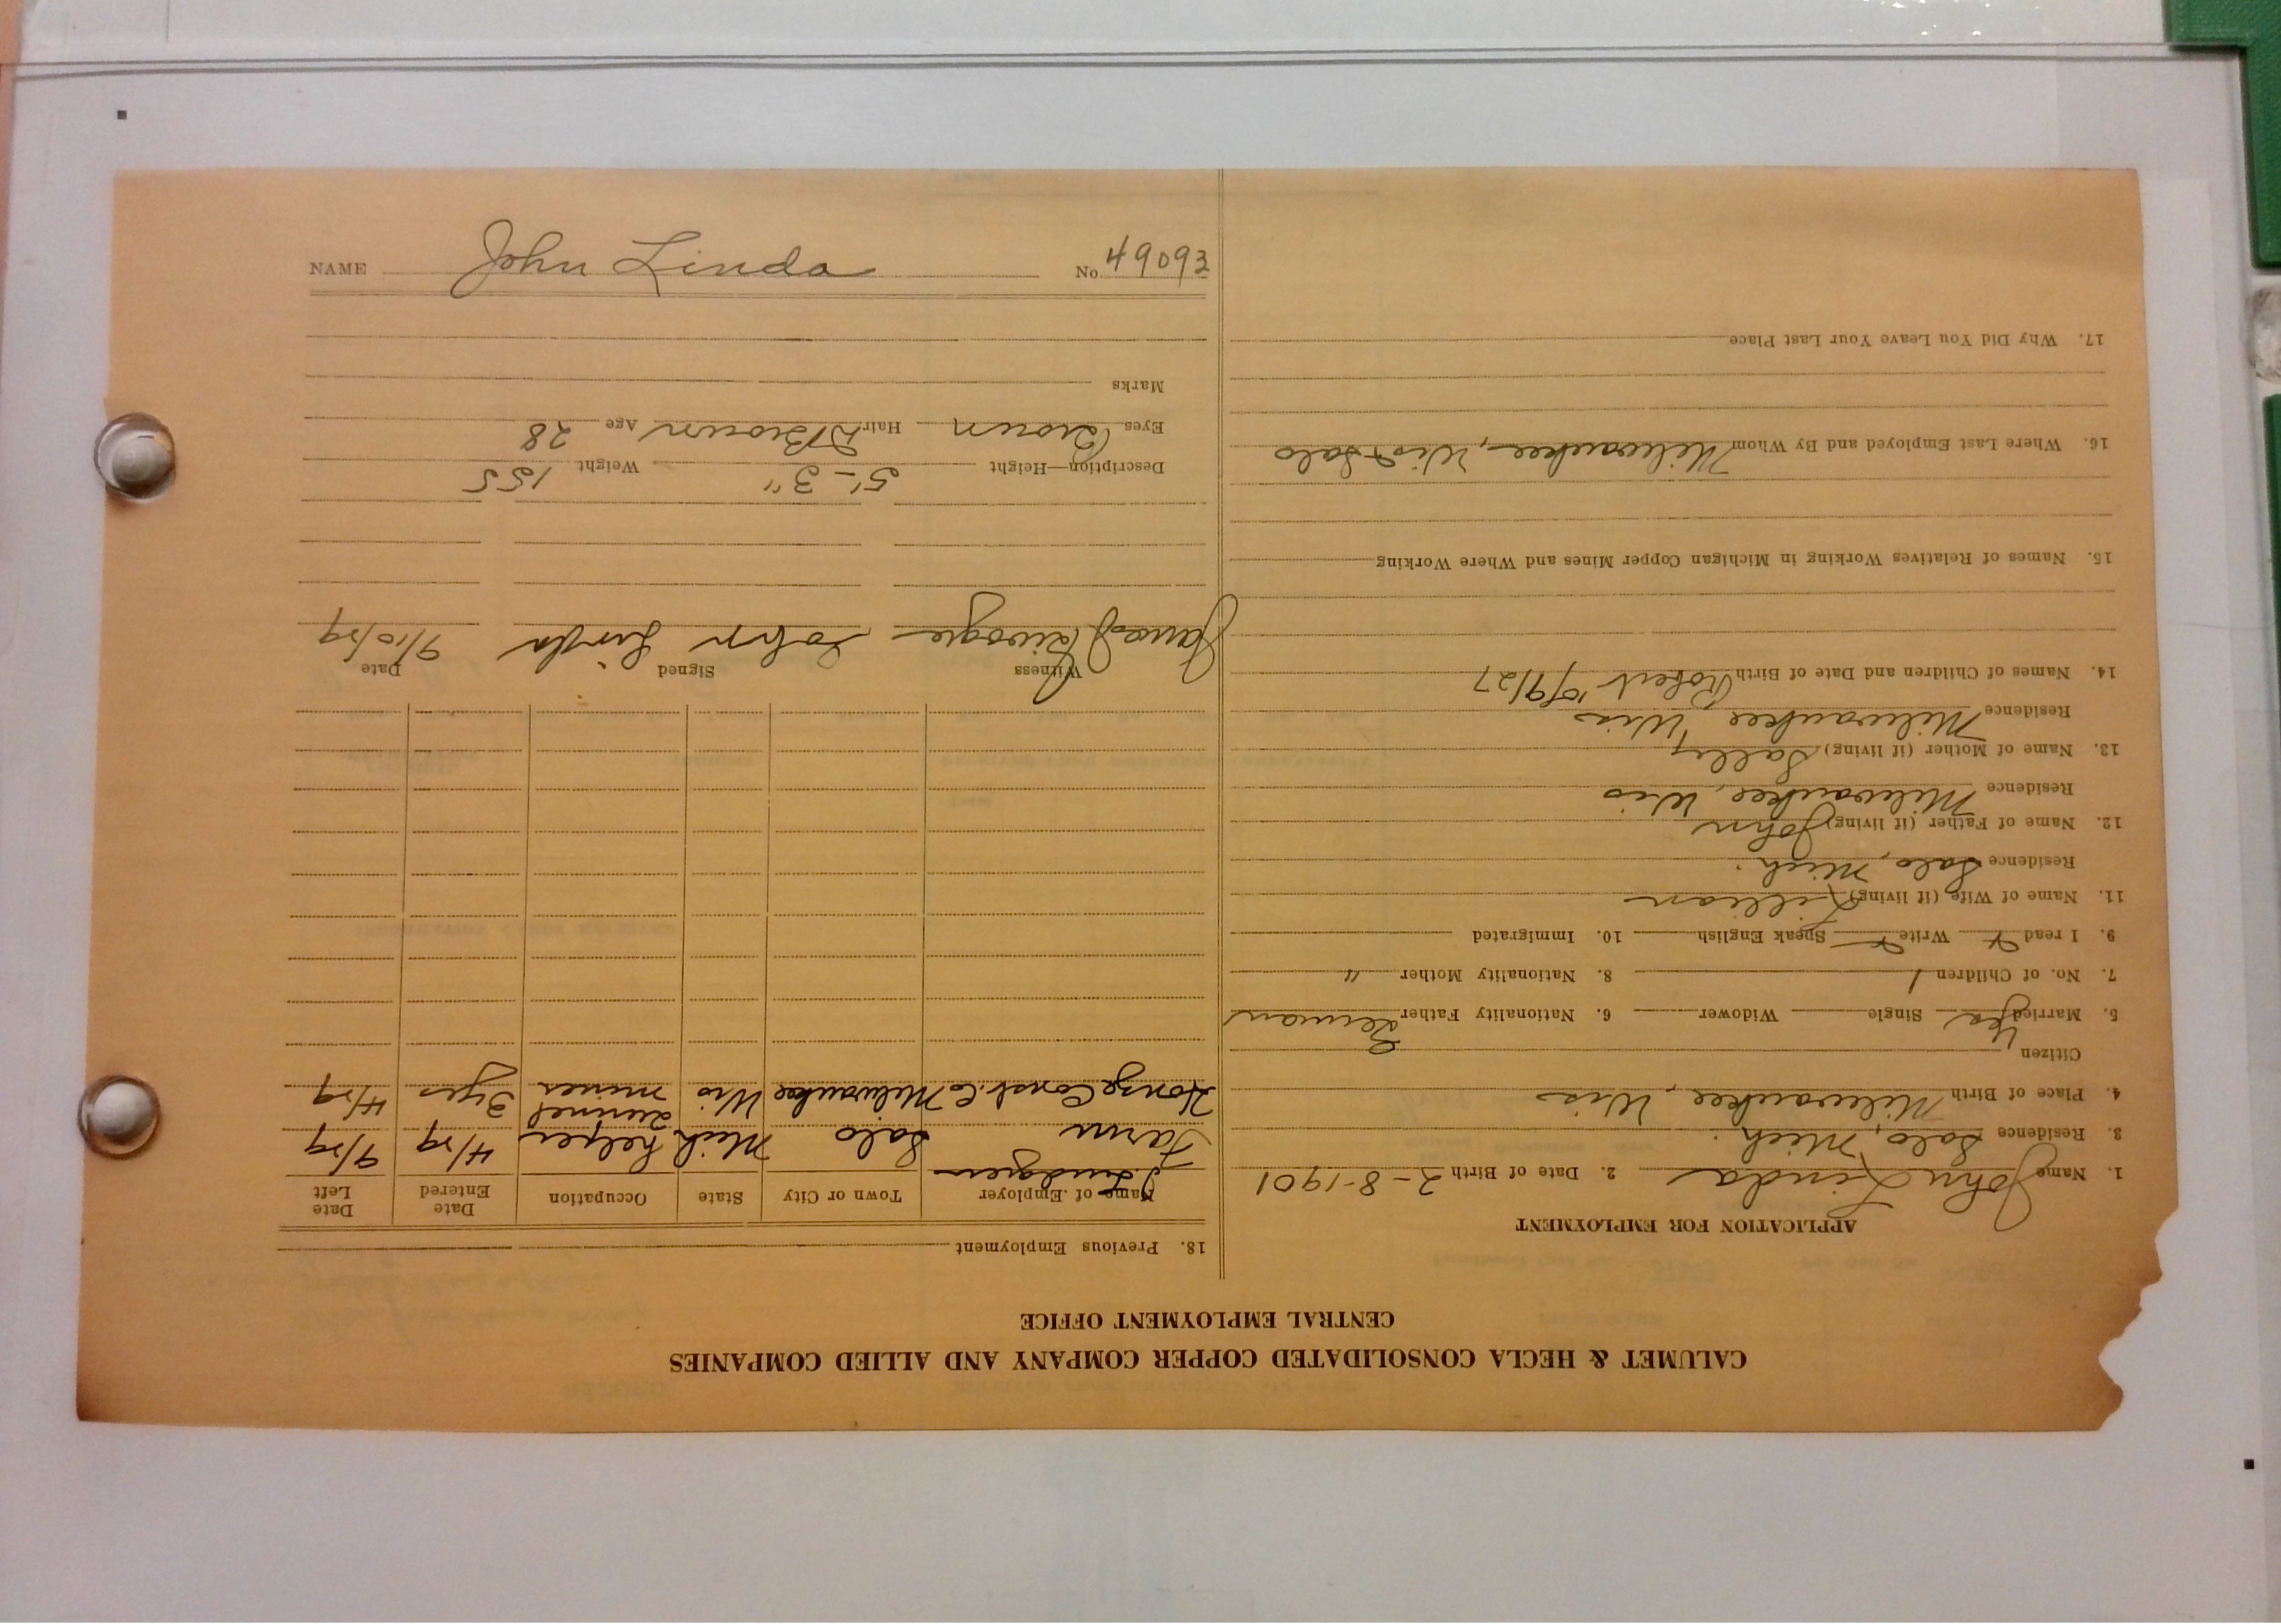 CALUMET & HECLA CONSOLIDATED COPPER COMPANY AND ALLIED COMPANIES
CENTRAL EMPLOYMENT OFFICE
APPLICATION FOR EMPLOYMENT
1. Name John Linda 2. Date of Birth 2-8-1901
3. Residence Salo, Mich.
4. Place of Birth Milwaukee, Wis
Citizen
5. Married Yes Single Widower 6. Nationality Father German
7. No. of Children 1 8. Nationality Mother "
9. I read Write Speak English 10. Immigrated
11. Name of Wife (if living) Lillian
Residence Salo, Mich.
12. Name of Father (if living) John
Residence Milwaukee, Wis
13. Name of Mother (if living) Sally
Residence Milwaukee, Wis
14. Names of Children and Date of Birth Robert 10/9/27
15. Names of Relatives Working in Michigan Copper Mines and Where Working
16. Where Last Employed and By Whom Milwaukee, Wis + Salo
17. Why Did You Leave Your Last Place
18. Previous Employment
Name of Employer Town or City State Occupation Date Entered Date Left
J. Lindgren
Farm Salo Mich helper 4/29 9/29
Const. Co Milwaukee Wis tunnel miner 3 yrs 4/29
Witness Signed Date
John Linda 9/10/29
Description—Height 5'-3" Weight 155
Eyes Brown Hair D Brown Age 28
Marks
NAME John Linda No. 49093